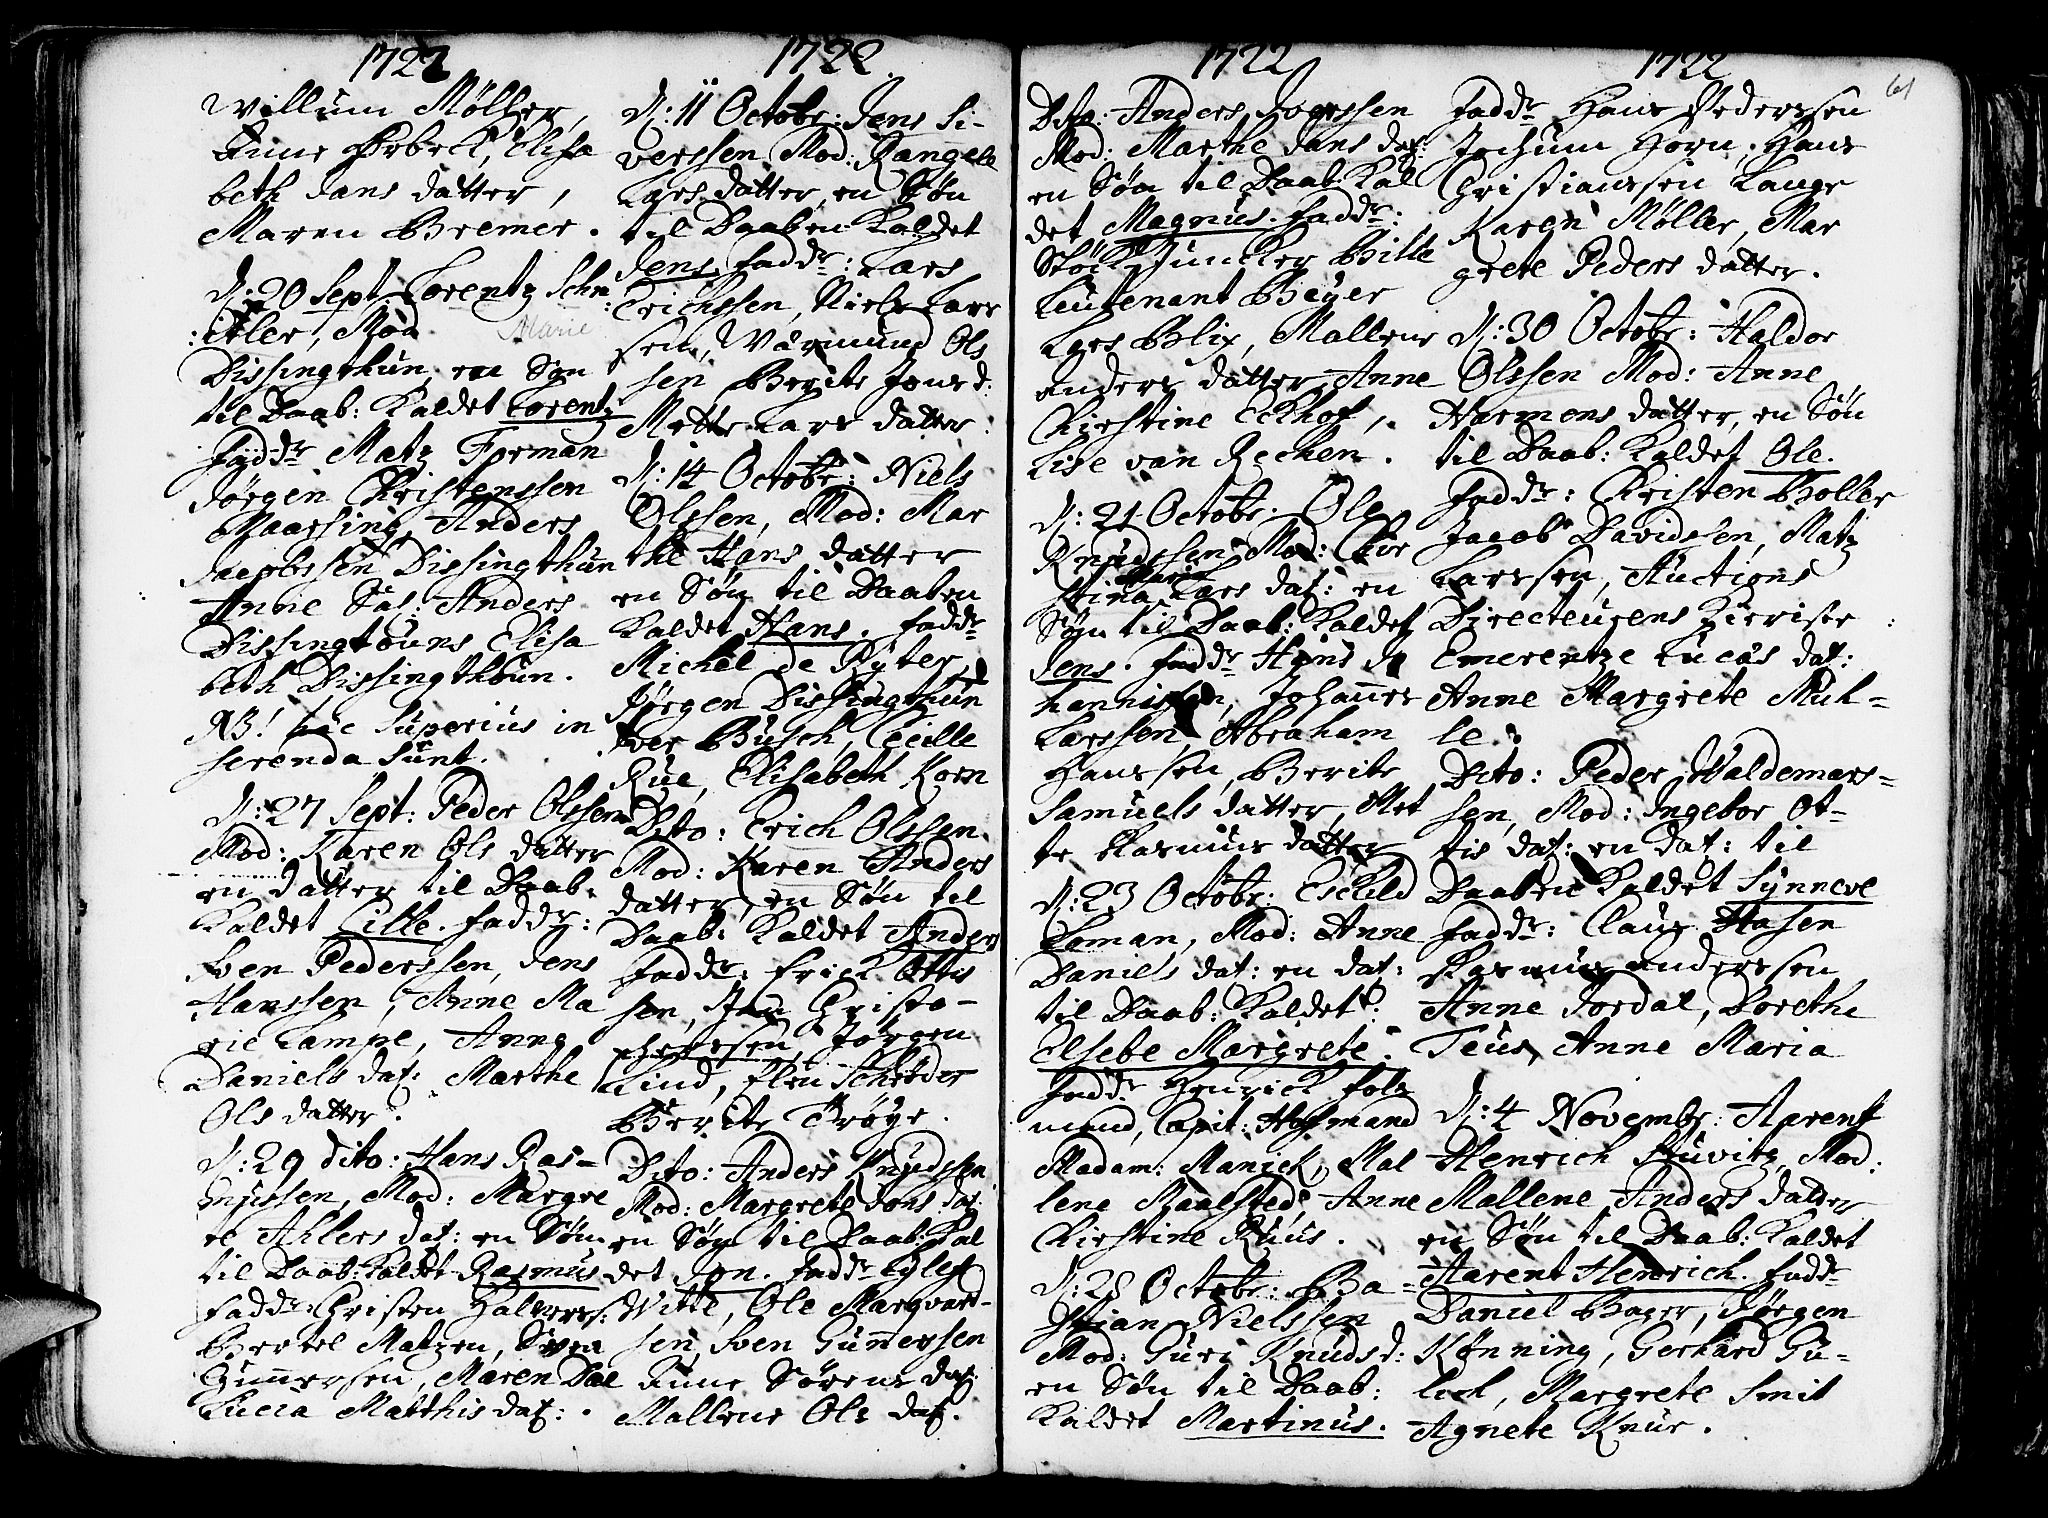 1722
Willum Møller,
Anne Ørbeck, Elisa
beth Jans datter,
Maren Bremer.
D: 20 Sept. Lorentz Schn
itler, Mod Marie
Dissingthun, en Søn
til Daab: Kaldet Lorentz
Fadd.r Matz Forman
Jørgen Christenssen
Maarsing, Anders
Jacobssen Dissingthun
Anne Sal: Anders
Dissingtouns, Elisa
beth Dissingthoun.
NB! hæc Superius in
serenda sunt.
D: 27 Sept: Peder Olssen
Mod: Karen Ols datter
en datter til Daab:
Kaldet Cille. Fadd.r:
Sven Pederssen, Jens
Hanssen, Anne Ma
rie Lampe, Anne
Daniels dat: Marthe
Ols datter.
D: 29 dito: Hans Ras-
mussen, Mod: Margre
te Ahlers dat: en Søn
til Daab: Kaldet Rasmus
Fadd.r Christen Halverss:
Bertel Matzen, Sven
Gunnersen, Maren Dal
Lucia Matthis dat:.
1722
D: 11 Octobr: Jens Si-
verssen Mod: Rangela
Lars datter, en Søn
til Daaben Kaldet
Jens. Fadd.r: Lars
Erichssen, Niels Lars
sen, Wärmund Ols
sen Berite Jons d:
Mette Lars datter.
D: 14 Octobr: Niels
Olssen, Mod: Mar
the Hans datter
en Søn til Daaben
Kaldet Hans. Fadd.r
Michel de Ryter,
Jørgen Dissingthun
Iver Busch, Cecille
Rue, Elisabeth Korn
Dito: Erich Olssen.
Mod: Karen Anders
datter, en Søn til
Daab: Kaldet Anders
Fadd.r: Erick Ottis
sen, Jan Christo-
phersen, Jørgen
Lind, Elen Schrøder
Berite Trøye.
Dito: Anders Knudssen
Mod: Margrete Jons dat:
en Søn til Daab: Kal
det Jon. Fadd.r Eylert
Witte, Ole Marqvard-
sen, Sven Gunnerssen
Anne Sørens dat:
Mallene Ols dat.
1722
Dito: Anders Iverssen
Mod: Marthe Jans dat:
en Søn til Daab: Kal
det Magnus. Fadd.r:
Støckjunker Bilte
Leutenant Beyer
Lars Blix, Mallene
Anders datter, Anne
Chirstine Eckhof,
Lise van Rechen.
D: 21 Octobr: Ole
Knudssen, Mod: Chir
stina Maria Lars dat: en
Søn til Daab: Kaldet
Jens. Fadd.r Hans Jo
hannissen, Johannes
Larssen, Abraham
Hanssen, Berite
Samuels datter, Met
te Rasmus datter
D: 23 Octobr: Eskild
Laman, Mod: Anne
Daniels dat: en dat:
til Daab: Kaldet:
Elsebe Margrete.
Fadd.r Henrick Folz
mand, Capit: Hofmand
Madam: Manick, Mal
lene Maalsted, Anne
Chirstine Ruus.
D: 28 Octobr: Ba-
stian Nielssen
Mod: Guri Knuds d:
en Søn til Daab:
Kaldet Martinus.
1722
61
Fadd.r Hans Pederssen
Jochum Horn, Hans
Christianssen Lange
Karen Møller, Mar
grete Peders datter.
D: 30 Octobr: Haldor
Olssen Mod: Anne
Harmens datter, en Søn
til Daab: Kaldet Ole.
Fadd.r: Christen Boller
Jacob Davidssen, Matz
Larssen, Auctions
Directeurens Zirise
Emerentze Lucas dat:
Anne Margrete Muh-
le.
Dito: Peder Waldemars-
sen, Mod: Ingebor Ot-
tis dat: en dat: til
Daaben Kaldet Synneve
Fadd.r: Claus Hasen
Rasmus Anderssen
Anne Jordal, Dorethe
Teus, Anne Maria
D: 4 Novembr: Aarent
Henrich Kuvitz, Mod:
Mallene Anders datter
en Søn til Daab: Kaldet
Aarent Henrich. Fadd.r
Daniel Bager, Jørgen
Kønning, Gerhard Gu-
lich, Margrete Smit
Agnete Knur.